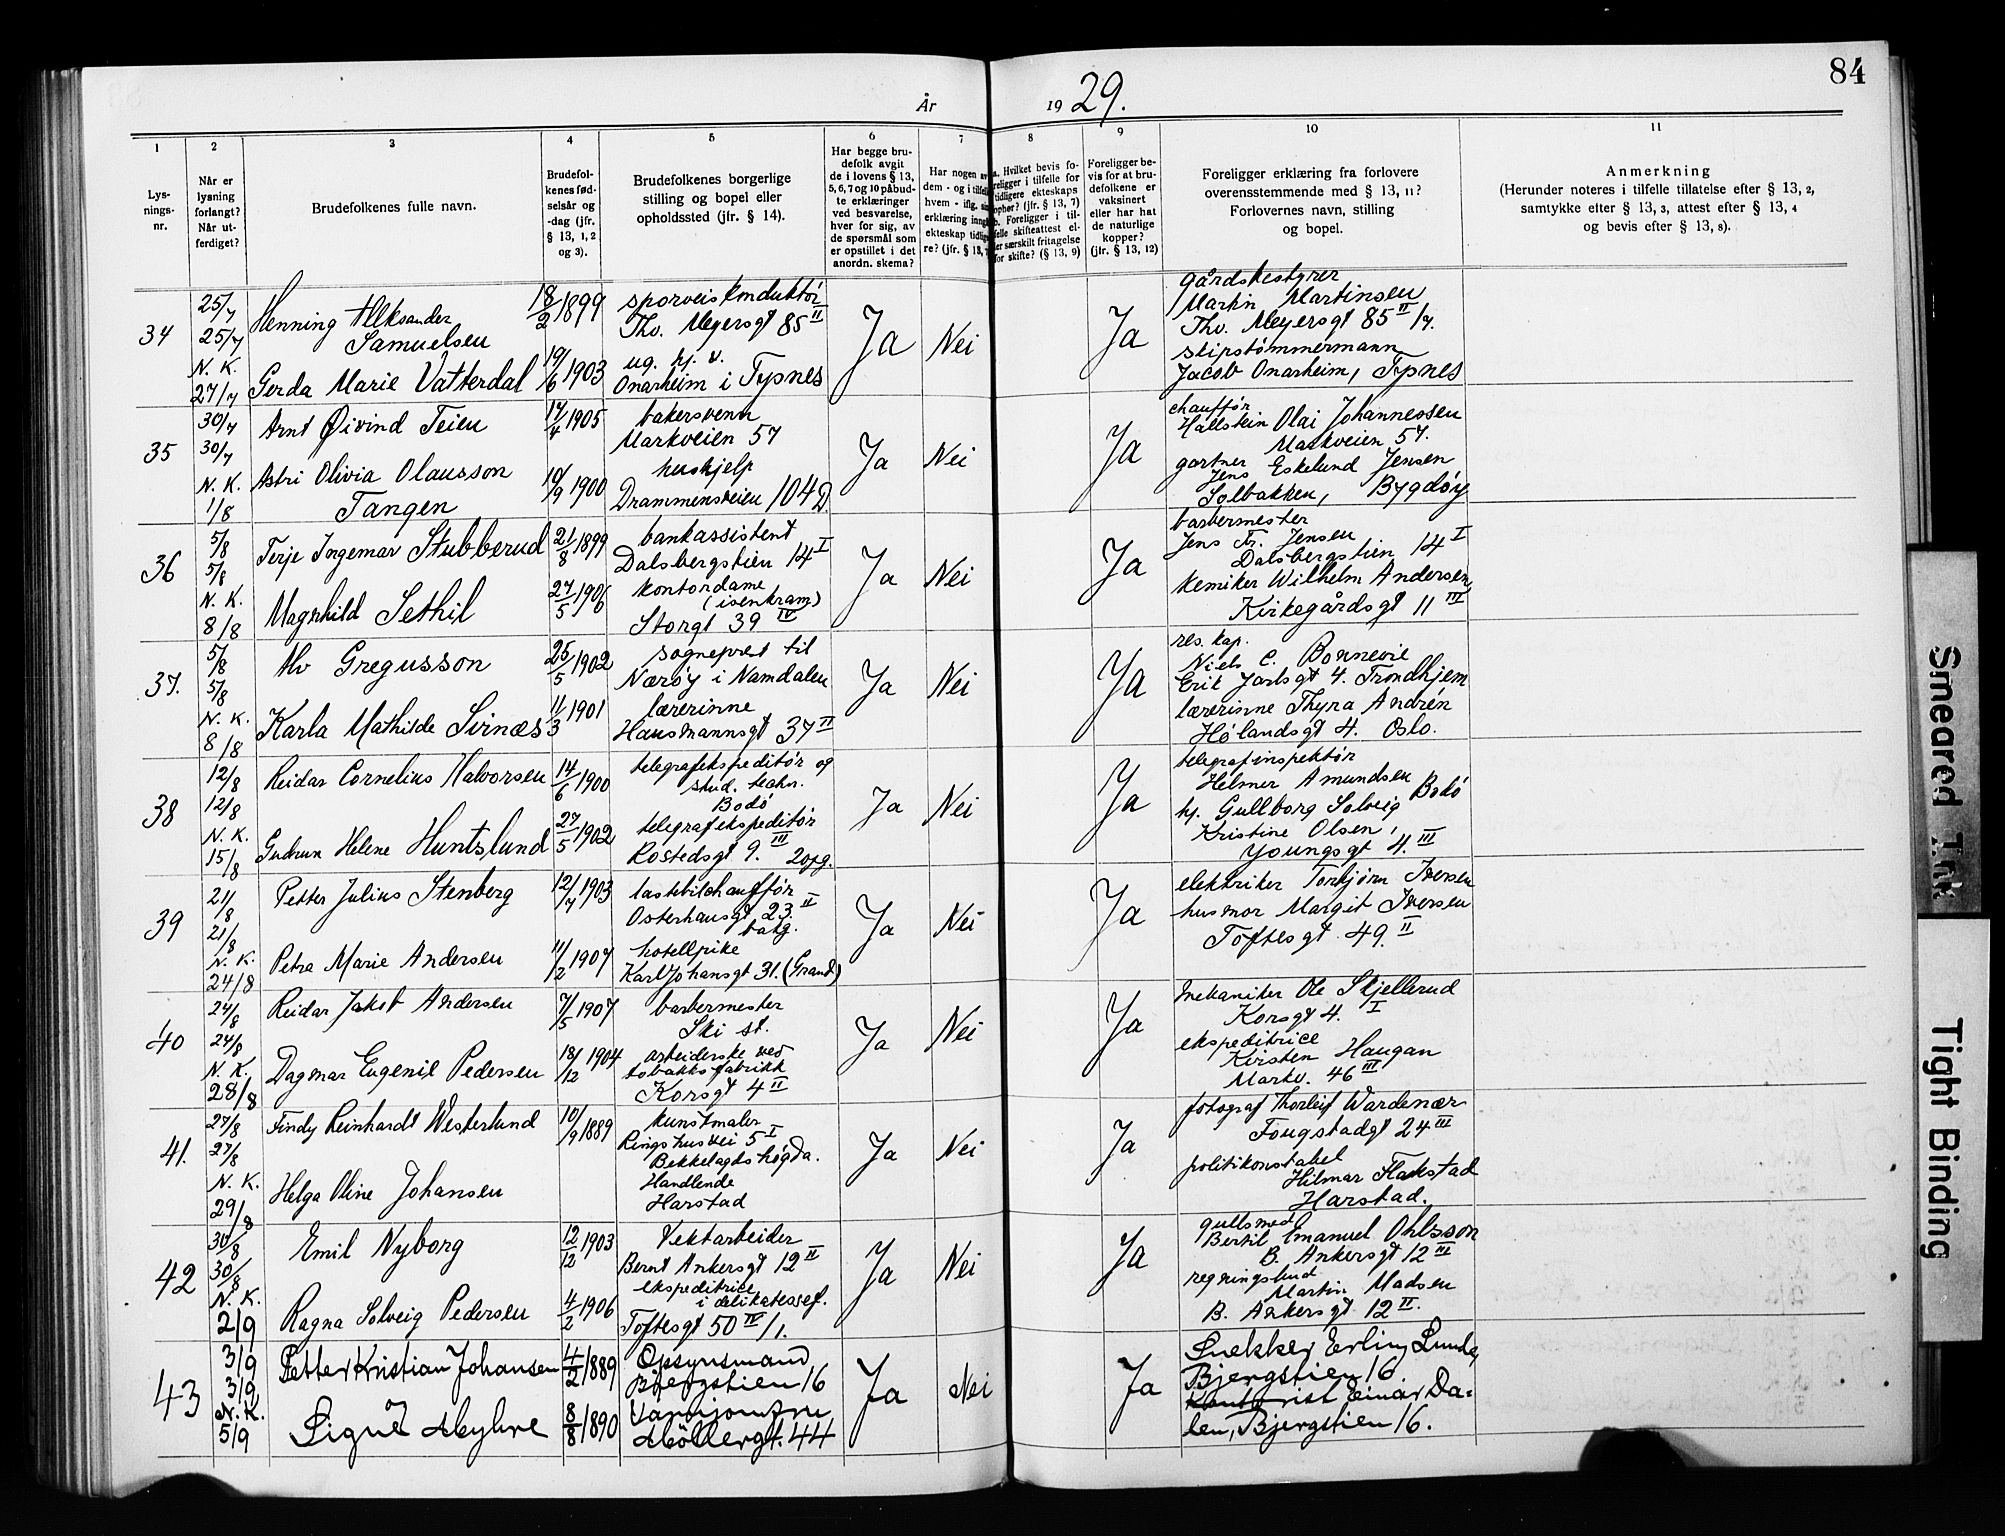 84
År 1929.
1 2 3 4 5 6 7 8 9 10 11
Lysnings-nr.
Når er lysning forlangt? Når utferdiget?
Brudefolkenes fulle navn.
Brudefolkenes fødselsår og -dag (jfr. § 13, 1, 2 og 3).
Brudefolkenes borgerlige stilling og bopel eller opholdssted (jfr. § 14).
Har begge brudefolk avgit de i lovens § 13, 5, 6, 7 og 10 påbudte erklæringer ved besvarelse, hver for sig, av de spørsmål som er opstillet i det anordn. skema?
Foreligger bevis for at brudefolkene er vaksinert eller har hat de naturlige kopper? (jfr. § 13, 12)
Foreligger erklæring fra forlovere overensstemmende med § 13, 11? Forlovernes navn, stilling og bopel.
Anmerkning
(Herunder noteres i tilfelle tillatelse efter § 13, 2, samtykke efter § 13, 3, attest efter § 13, 4 og bevis efter § 13, 8).
34
25/7
25/7
N. K.
27/7
Henning Aleksander
Samuelsen
Gerda Marie Vatterdal
18/2 1899
19/6 1903
sporveiskonduktør
Thv. Meyersgt 85 II
ug. hj. v.
Onarheim i Tysnes
Ja Nei Ja
gårdsbestyrer
Martin Martinsen
Thv. Meyersgt 85 II/7.
skipstømmermann
Jacob Onarheim, Tysnes
35
30/7
30/7
N. K.
1/8
Arnt Øivind Teien
Astri Olivia Olausson
Tangen
14/4 1905
10/9 1900
bakersvenn
Markveien 57
hushjelp
Drammensveien 104 D.
Ja Nei Ja
chauffør
Hallstein Olai Johannessen
Markveien 57.
gartner Eskelund Jensen
Jens
Solbakken, Bygdøy
36
5/8
5/8
N. K.
8/8
Terje Ingemar Stubberud
Magnhild Sethil
21/8 1899
27/5 1906
bankassistent
Dalsbergstien 14 I
kontordame
(isenkram)
Storgt 39 IV
Ja Nei Ja
barbermester
Jens Fr. Jensen
Dalsbergstien 14 I
kemiker Wilhelm Andersen
Kirkegårdsgt 11 III
37.
5/8
5/8
N. K.
8/8
Alv Gregusson
Karla Mathilde Svinæs
25/5 1902
11/3 1901
sogneprest til
Nærøy i Namdalen
lærerinne
Hausmannsgt 37 II
Ja Nei Ja
res. kap.
Niels C. Bonnevie
Erik Jarlsgt 4. Trondhjem
lærerinne Thyra Andrén
Hølandsgt 4. Oslo.
38
12/8
12/8
N. K.
15/8
Reidar Cornelius Halvorsen
Gudrun Helene Huntslund
14/6 1900
27/5 1902
telegrafekspeditør og
stud. techn.
Bodø
telegrafekspeditør
Rostedsgt 9. III 2opg.
Ja Nei Ja
telegrafinspektør
Helmer Amundsen
Bodø
hj. Gullborg Solveig
Kristine Olsen,
Youngsgt 4. III
39
21/8
21/8
N. K.
24/8
Petter Julius Stenberg
Petra Marie Andersen
12/7 1903
11/2 1907
lastebilchauffør
Osterhausgt 23. II
bakg.
hotellpike
Karl Johansgt 31. (Grand)
Ja Nei Ja
elektriker Torbjørn Iversen
husmor Margit Iversen
Toftesgt. 49. II
40
24/8
24/8
N. K.
28/8
Reidar Jakob Andersen
Dagmar Eugenie Pedersen
7/5 1907
18/12 1904
barbermester
Ski st.
arbeiderske ved
tobakksfabrikk
Korsgt 4 II
Ja Nei Ja
mekaniker Ole Skjellerud
Korsgt 4. I
ekspeditrice
Kirsten Haugan
Markv. 46 III
41.
27/8
27/8
N. K.
29/8
Findy Reinhardt Westerlund
Helga Oline Johansen
10/9 1889
kunstmaler
Ringshusvei 5 I
Bekkelagshøgda.
Handlende
Harstad
Ja Nei Ja
fotograf Thorleif Wardenær
Fougstadgt 24 III
politikonstabel
Hilmar Flakstad
Harstad.
42
30/8
30/8
N. K.
2/9
Emil Nyborg
Ragna Solveig Pedersen
12/12 1903
4/2 1906
Vektarbeider
Bernt Ankersgt 12 II
ekspeditrice
i delikatessef.
Toftesgt 50 IV/1.
Ja Nei Ja
gullsmed
Bertil Emanuel Ohlsson
B. Ankersgt 12 III
regningsbud
Martin Madsen
B. Ankersgt 12 II.
43
3/9
3/9
N. K.
5/9
Petter Kristian Johansen
Signe Myhre
4/2 1889
8/8 1890
Opsynsmand
Bjergstien 16
Møllergt. 44
Ja Nei Ja
Snekker Erling Lunde,
Bjergstien 16.
Kontorist Einar Da-
len, Bjergstien 16.
Smeared Ink
Tight Binding